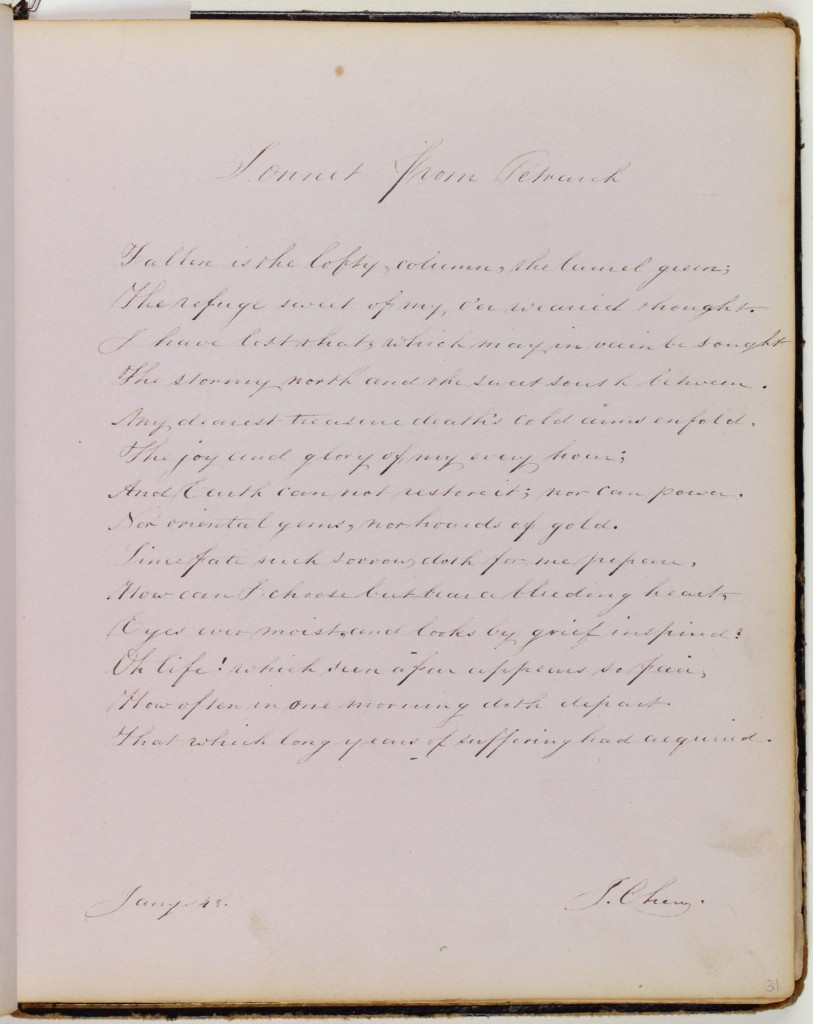 Sonnet from Petrarch
Fallen is the lofty column, the laurel green;
The refuge sweet of my o'er wearied thought.
I have lost that, which may in vain be sought
The stormy north and the sweet south between.
My dearest treasure death's cold arms enfold,
The joy and glory of my every hour;
And Earth can not restore it; nor can power.
Nor oriental gems, nor hoards of gold.
Since fate such sorrow doth for me prepare,
How can I choose but bear a bleeding heart,
Eyes ever moist, and looks by grief inspired?
Oh life! which seen afar appears so fair,
How often in one morning doth depart
That which long years of suffering had acquired.
Jany. 48.
31